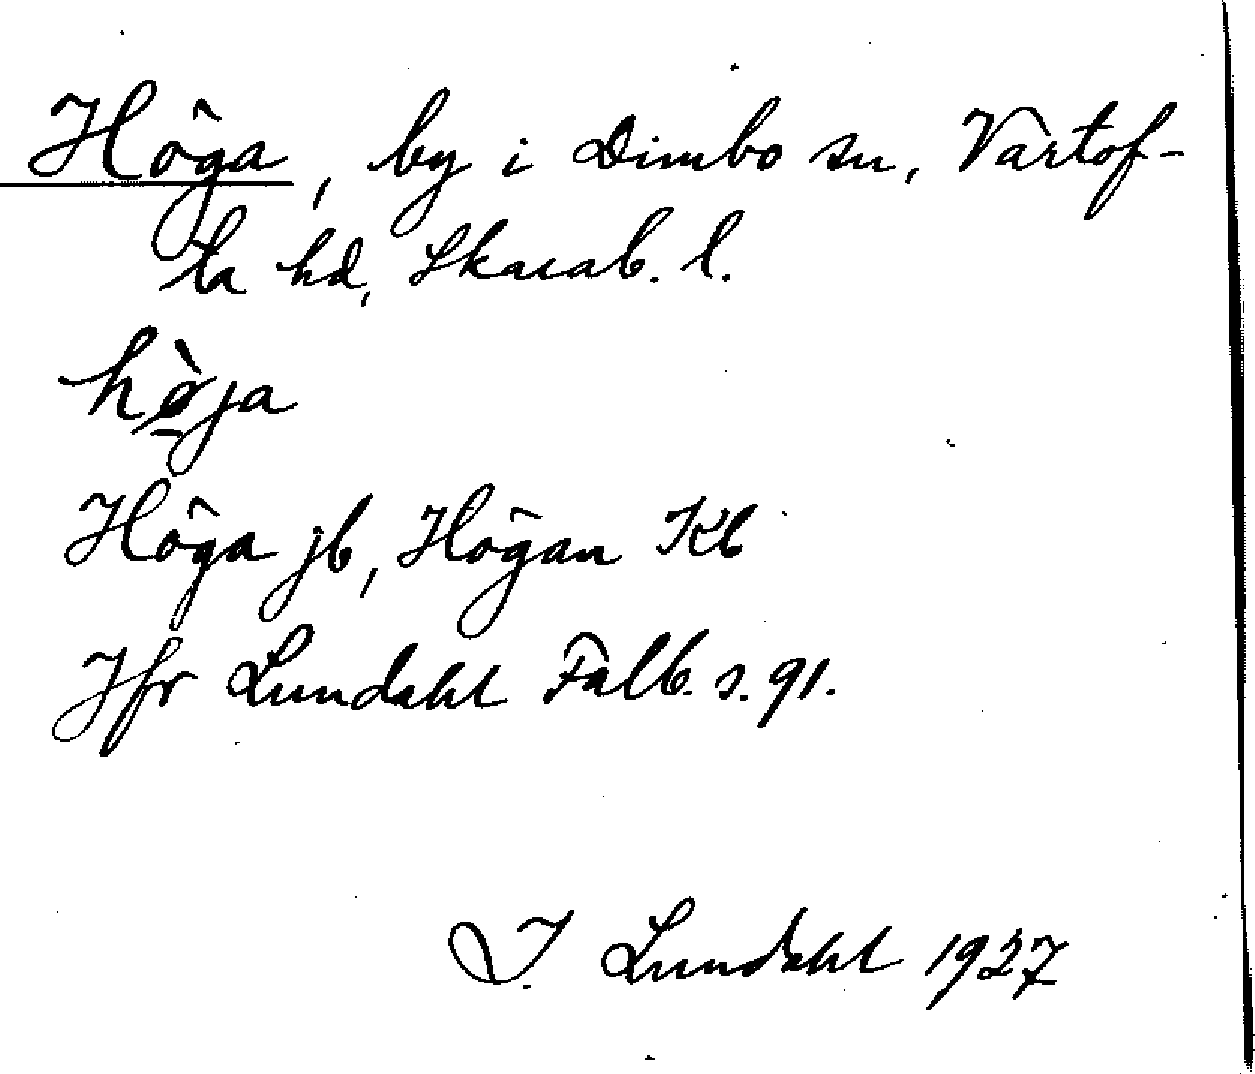 Höga, by i Dimbo sn, Vartof-
ta hd, Skarab. l.
hø̀ja
Höga jb, Högan Kb
Jfr Lundahl Falb. s. 91.
I. Lundahl 1927